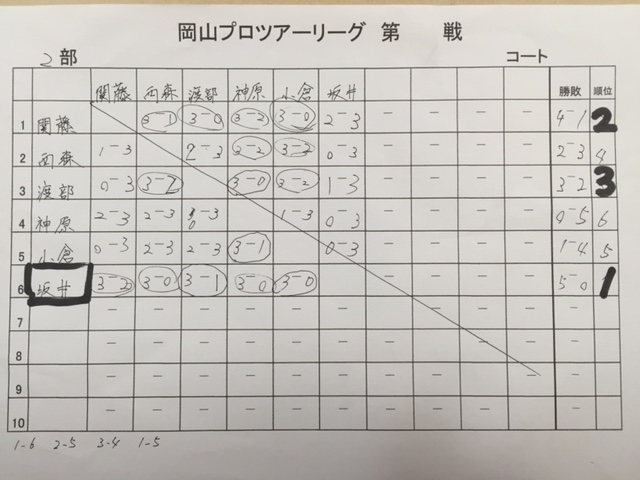 岡山プロツアーリーグ 第 戦
2部 コート
関藤 西森 渡部 神原 小倉 坂井 － － － － 勝敗 順位
1 関藤 3-1 3-0 3-2 3-0 2-3 － － － － 4-1 2
2 西森 1-3 2-3 3-2 3-2 0-3 － － － － 2-3 4
3 渡部 0-3 3-2 3-0 3-2 1-3 － － － － 3-2 3
4 神原 2-3 2-3 0-3 1-3 0-3 － － － － 0-5 6
5 小倉 0-3 2-3 2-3 3-1 0-3 － － － － 1-4 5
6 坂井 3-2 3-0 3-1 3-0 3-0 － － － － 5-0 1
7 － － － － － － － － － －
8 － － － － － － － － － －
9 － － － － － － － － － － －
10 － － － － － － － － － －
1-6 2-5 3-4 1-5